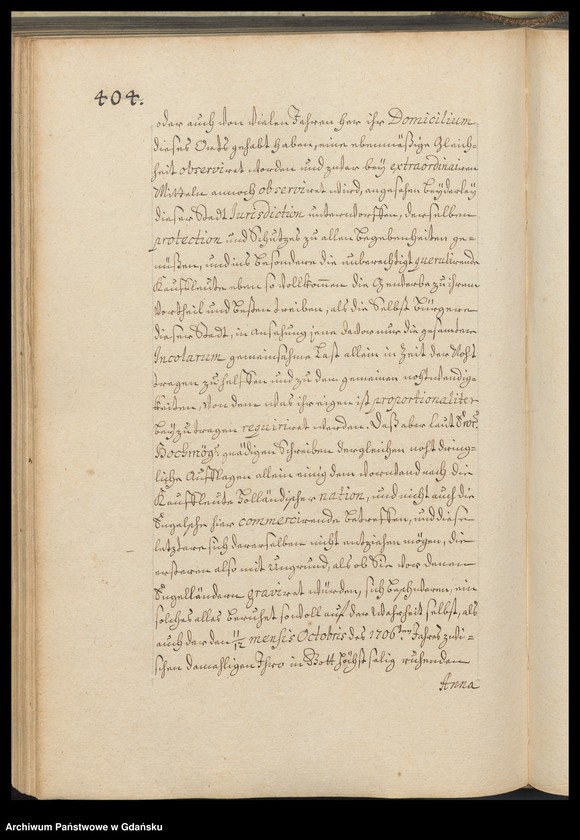 404.
oder auch von vielen Jahren her ihr Domicilium
dieses Orts gehabt haben, eine ebenmäßige Gleich-
heit observiret worden und zwar bey extraordinairen
Mitteln annoch observiret wird, angesehen beyderley
dieser Stadt Jurisdiction unterworffen, derselben
protection und Schutzes zu allen Begebenheiten ge-
nüßen, und ins besondere die unberechtigt querulirende
Kauffleute eben so vollkommen die Gewerbe zu ihrem
Vortheil und Besten treiben, als die Selbst Bürgere
dieser Stadt, in Ansehung jene davor nur die gesamten
Incolarum gemeinsahme Last allein in Zeit der Noht
tragen zu helffen und zu den gemeinen nohtwendig-
keiten, von dem was ihr eigen ist proportionaliter
beyzutragen requiriret werden. Daß aber laut
Hochmög: gnädigen Schreiben dergleichen noht dring-
liche Aufflagen allein einig dem vorwand nach die
Kauffleute Holländischer nation, und nicht auch die
Engelsche hier commercirende betreffen, und diese
letztere sich derselben nicht entziehen mögen, die
ersteren also mit Ungrund, als ob Sie vor denen
Engelländern graviret würden, sich beschweren, ein
solches alles beruhet sowoll auf der Wahrheit selbst, als
auch der den 11/12 mensis Octobris des 1706ten Jahres zwi-
schen damahligen Ihro in Gott höchst seelig ruhenden
Anna
Archiwum Państwowe w Gdańsku